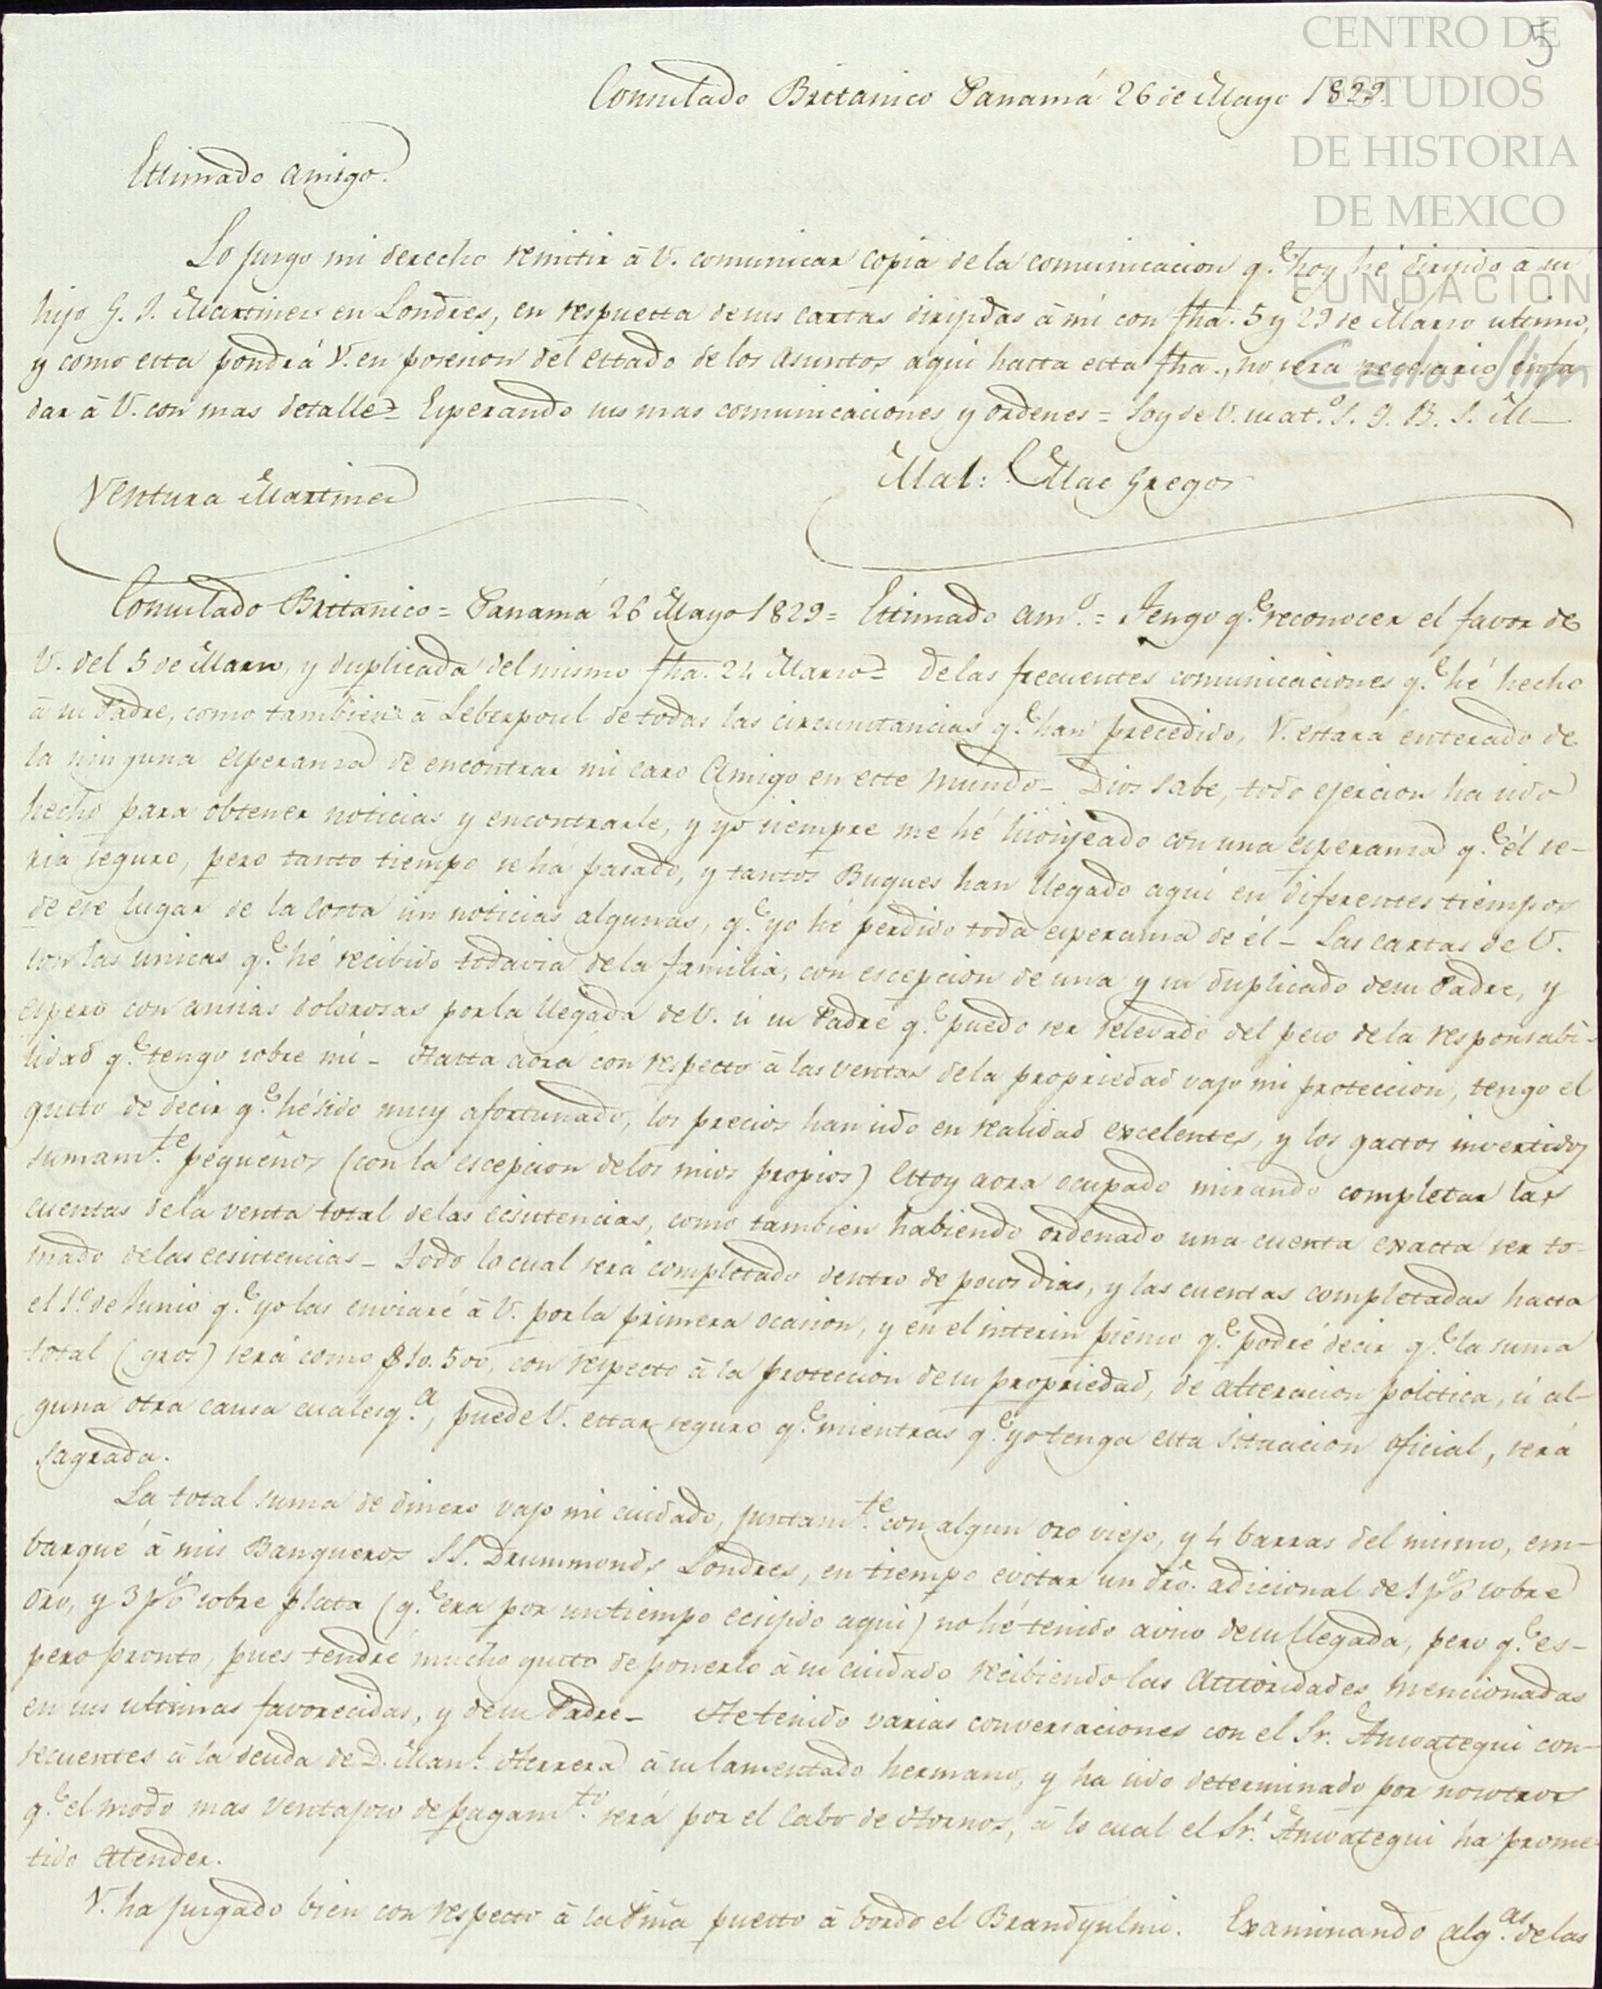 CENTRO DE
ESTUDIOS
DE HISTORIA
DE MEXICO
FUNDACIÓN
Carlos Slim
5
Consulado Brittanico Panamá 26 de Mayo 1829.
Estimado amigo.
Lo jusgo mi derecho remitir â V. comunicar copia de la comunicacion q.e hoy hé dirijido â su
hijo G. J. Martinez en Londres, en respuesta de sus cartas dirijidas â mi con fha. 5 y 29 de Marzo ultimo,
y como esta pondrá V. en posesion del estado de los asuntos aqui hasta esta fha., no sera necesario enfa
dar â V. con mas detalle = Esperando sus mas comunicaciones y ordenes = Soy de V. su at.o S. Q. B. S. M
Mal: Mac Gregor
Ventura Martinez
Consulado Brittanico = Panamá 26 Mayo 1829 = Estimado am.o = Tengo q.e reconocer el favor de
V. del 5 de Marzo, y duplicada del mismo fha. 24 Marzo = De las frecuentes comunicaciones q.e hé hecho
â su Padre, como tambien â Leberpoul de todas las circunstancias q.e han precedido, V. estará enterado de
la ninguna esperanza de encontrar mi caro Amigo en este mundo - Dios sabe, todo ejercion ha sido
hecho para obtener noticias y encontrarle, y yo siempre me hé lisonjeado con una esperanza q.e él se-
ria seguro, pero tanto tiempo se há pasado, y tantos Buques han llegado aqui en diferentes tiempos
de ese lugar de la costa sin noticias algunas, q.e yo hé perdido toda esperanza de él - Las cartas de V.
son las unicas q.e hé recibido todavia de la familia, con escepcion de una y su duplicado de su Padre, y
espero con ansias dolorosas por la llegada de V. ú su Padre q.e puedo ser relevado del peso de la responsabi-
lidad q.e tengo sobre mi - Hasta aora con respecto â las ventas de la propriedad vajo mi proteccion, tengo el
gusto de decir q.e hé sido muy afortunado, los precios han sido en realidad excelentes, y los gastos invertidos
sumam.te pequeños (con la escepcion de los mios propios) Estoy aora ocupado mirando completar las
cuentas de la venta total de las ecsistencias, como tambien habiendo ordenado una cuenta exacta ser to-
mado de las ecsistencias - Todo lo cual será completado dentro de pocos dias, y las cuentas completadas hasta
el 1.o de Junio q.e yo las enviaré â V. por la primera ocasion, y en el interin pienso q.e podré decir q.e la suma
total (gros) será como $10.500, con respecto â la proteccion de su propriedad, de alteracion politica, ú al-
guna otra causa cualesq.a, puede V. estar seguro q.e mientras q.e yo tenga esta situacion oficial, será
sagrada.
La total suma de dinero vajo mi cuidado, juntam.te con algun oro viejo, y 4 barras del mismo, em-
barqué â mis Banqueros SS. Drummonds Londres, en tiempo evitar un dro. adicional de 1 p% sobre
oro, y 3 p% sobre plata (q.e era por un tiempo ecsijido aqui) no hé tenido aviso de su llegada, pero q.e es-
pero pronto, pues tendré mucho gusto de ponerlo â su cuidado recibiendo las Autoridades mencionadas
en sus ultimas favorecidas, y de su Padre - He tenido varias conversaciones con el Sr. Ansoategui con-
secuentes â la deuda de D. Man.l Herrera â su lamentado hermano, y ha sido determinado por nosotros
q.e el modo mas ventajoso de pagam.to será por el Cabo de Hornos, â lo cual el Sr. Ansoategui ha prome
tido atender.
V. ha jusgado bien con respecto â la Piña puesto â bordo el Brandyulmi. Examinando alg.as de las